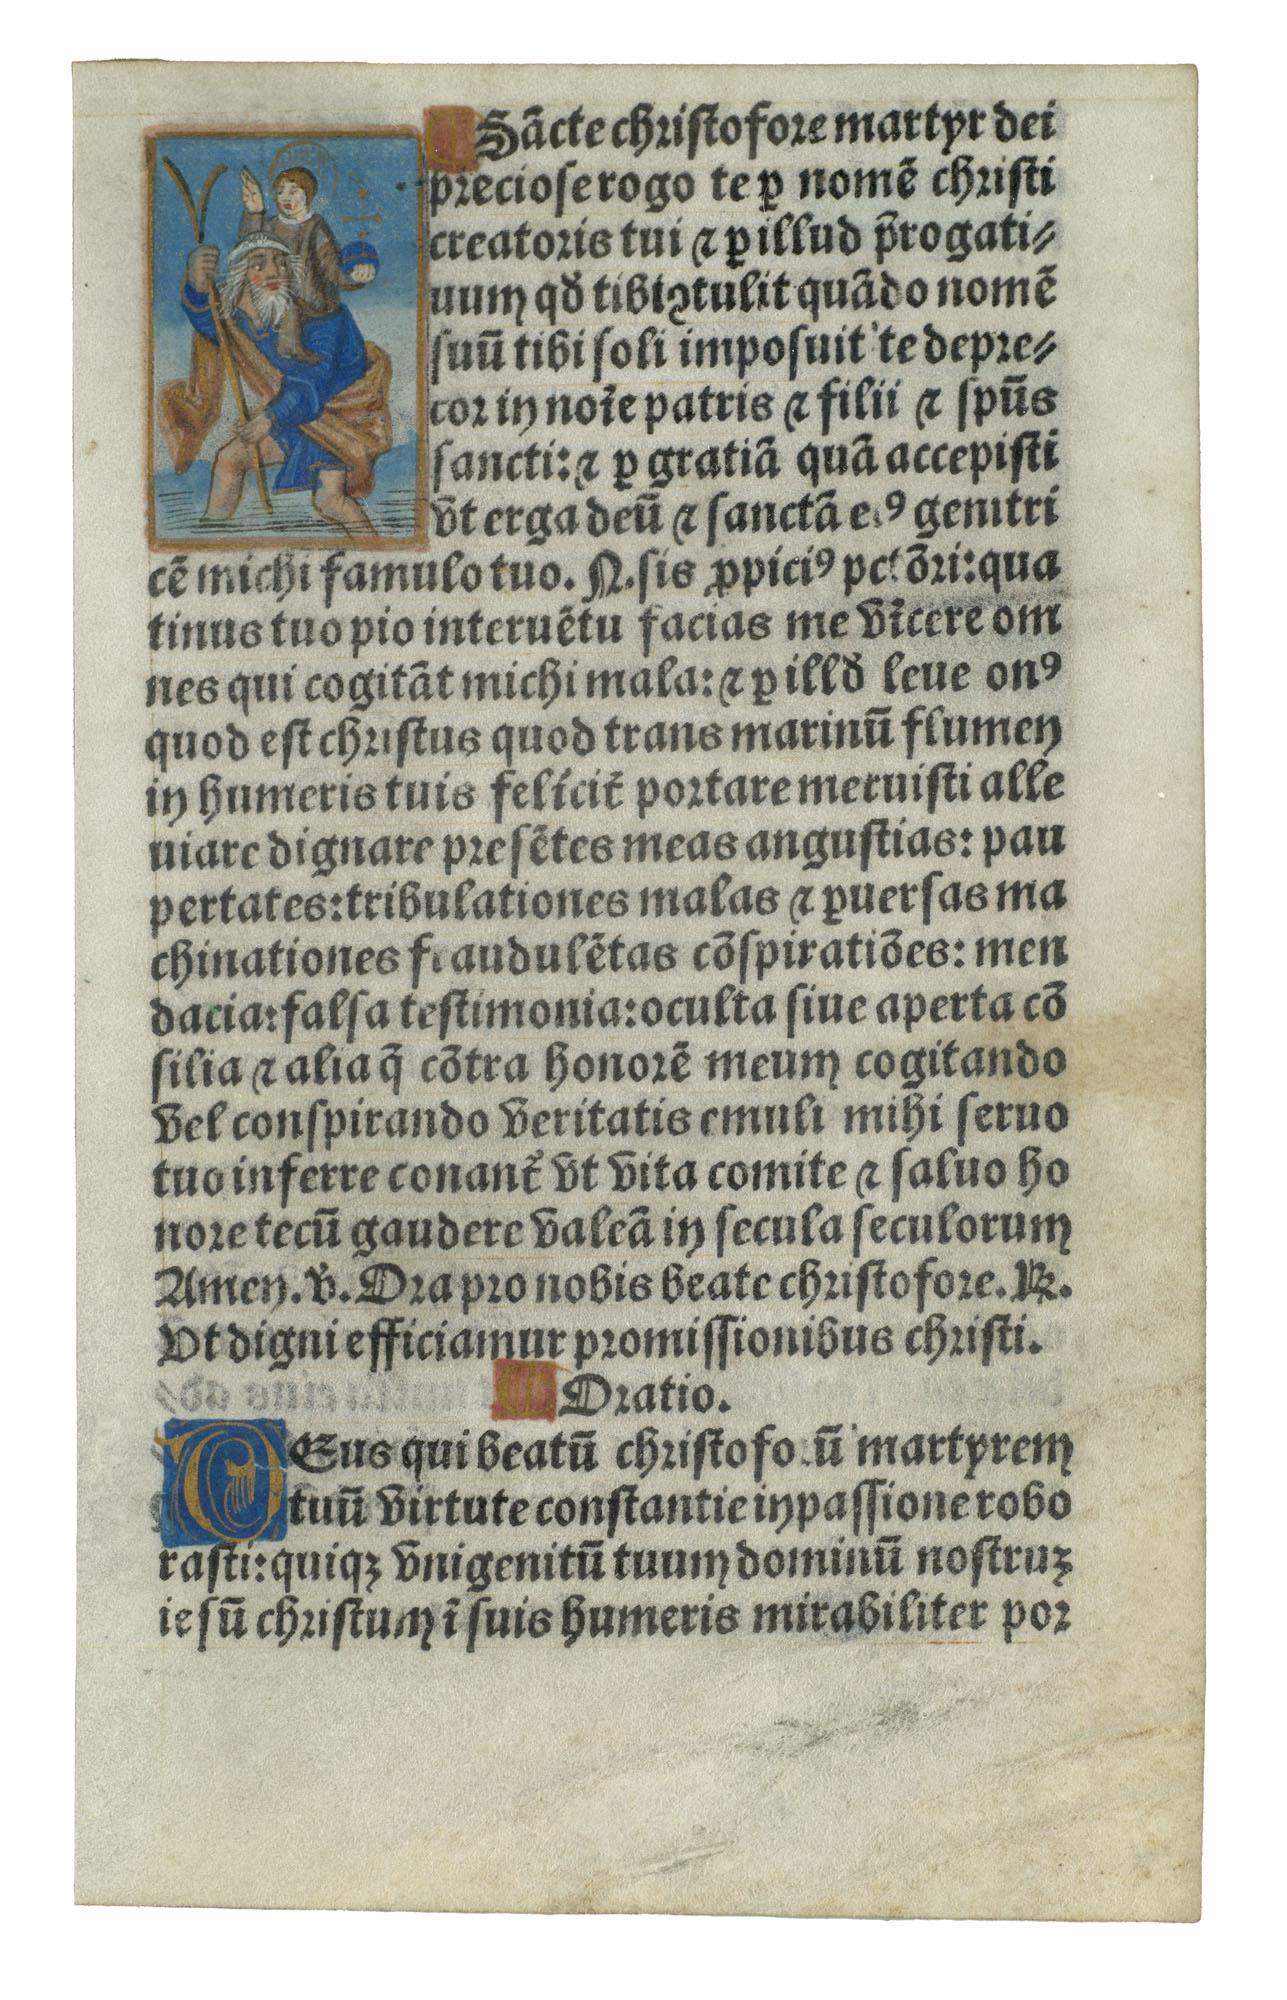 Sācte christofore martyr dei
preciose rogo te ꝑ nomē christi
creatoris tui ⁊ ꝑ illud p̄rogati⸗
uum qđ tibi ꝯtulit quādo nomē
suū tibi soli imposuit te depre⸗
cor in noīe patris ⁊ filii ⁊ spūs
sancti: ⁊ ꝑ gratiā quā accepisti
vt erga deū ⁊ sanctā eiꝰ genitri
cē michi famulo tuo. N. sis ꝓpiciꝰ pctōri: qua
tinus tuo pio interuētu facias me vīcere om
nes qui cogitāt michi mala: ⁊ ꝑ illđ leue onꝰ
quod est christus quod trans marinū flumen
in humeris tuis felicit̄ portare meruisti alle
uiare dignare presētes meas angustias: pau
pertates: tribulationes malas ⁊ ꝑuersas ma
chinationes fraudulētas cōspiratiōes: men
dacia: falsa testimonia: oculta siue aperta cō
silia ⁊ alia q̄ cōtra honorē meum cogitando
vel conspirando veritatis emuli mihi seruo
tuo inferre conant̄ vt vita comite ⁊ saluo ho
nore tecū gaudere valeā in secula seculorum
Amen. ℣. Ora pro nobis beate christofore. ℟.
Vt digni efficiamur promissionibus christi.
Oratio.
DEus qui beatū christoforū martyrem
tuū virtute constantie in passione robo
rasti: quiqꝫ vnigenitū tuum dominū nostruꝫ
iesū christum ī suis humeris mirabiliter por